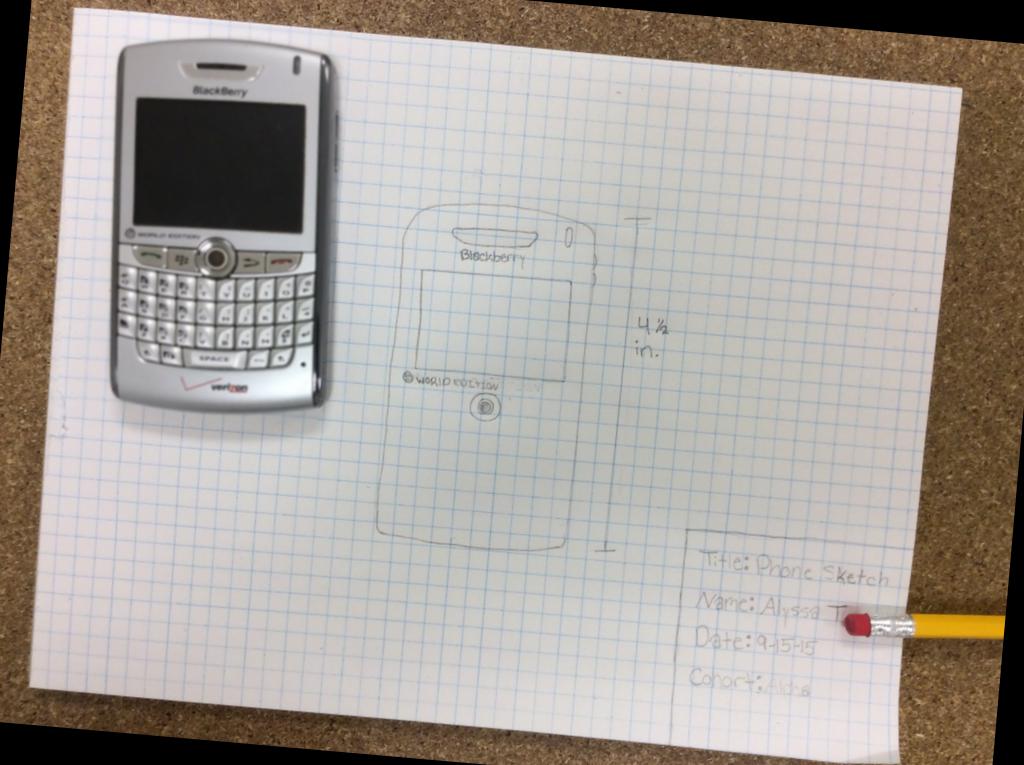 BlackBerry
WORLD EDITION
SPACE
verizon
Blackberry
WORLD EDITION
4 ½
in.
Title: Phone Sketch
Name: Alyssa T
Date: 9-15-15
Cohort: Alpha